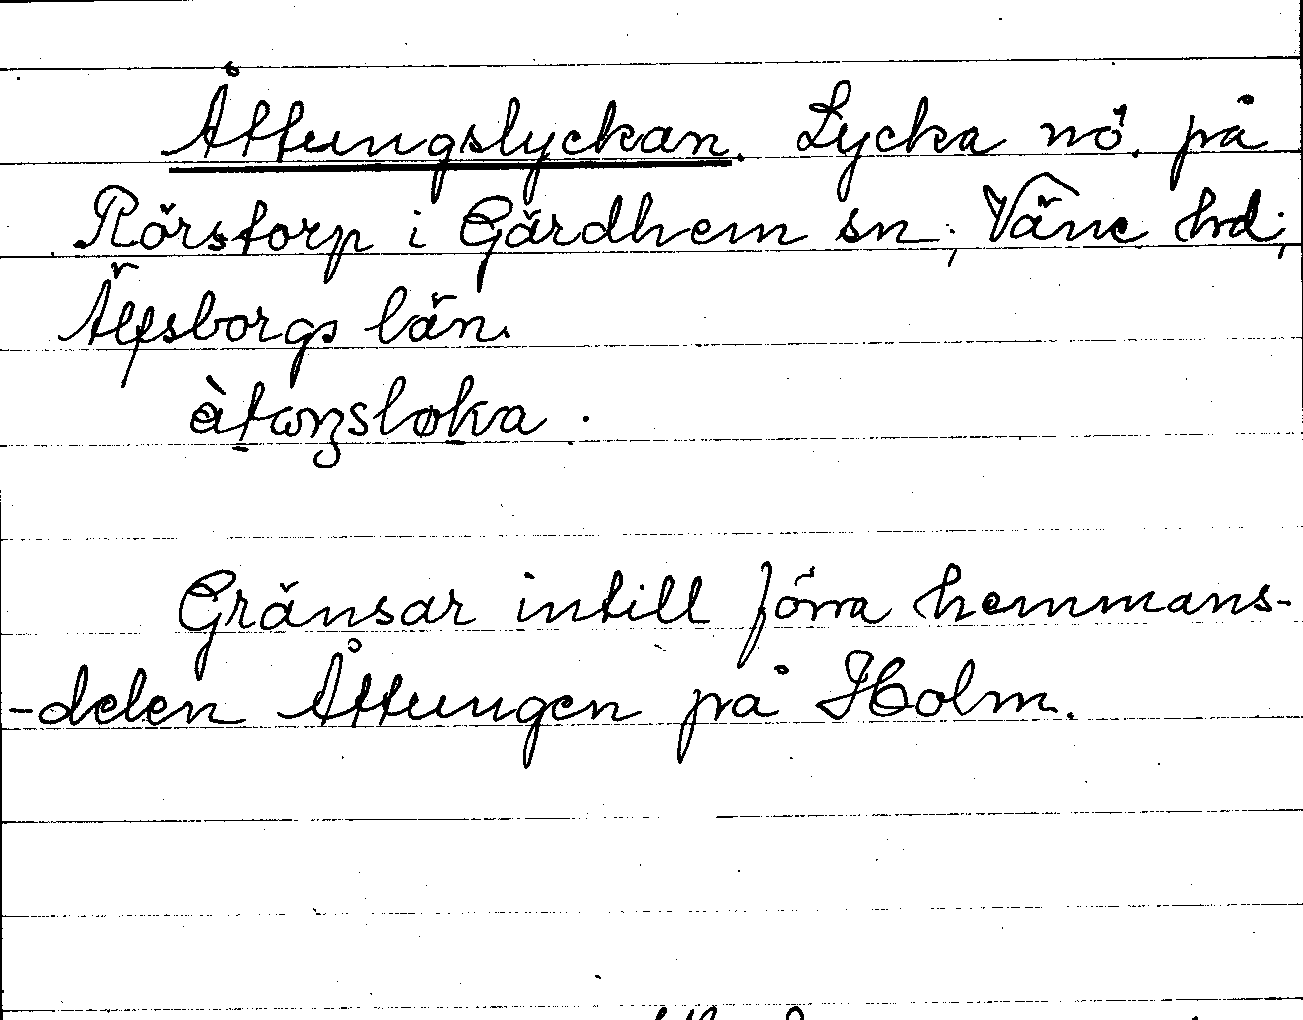 Åttungslyckan. Lycka nö. på
Rörstorp i Gärdhem sn; Väne hd;
Älfsborgs län.
Gränsar intill förra hemmans-
-delen Åttungen på Holm.